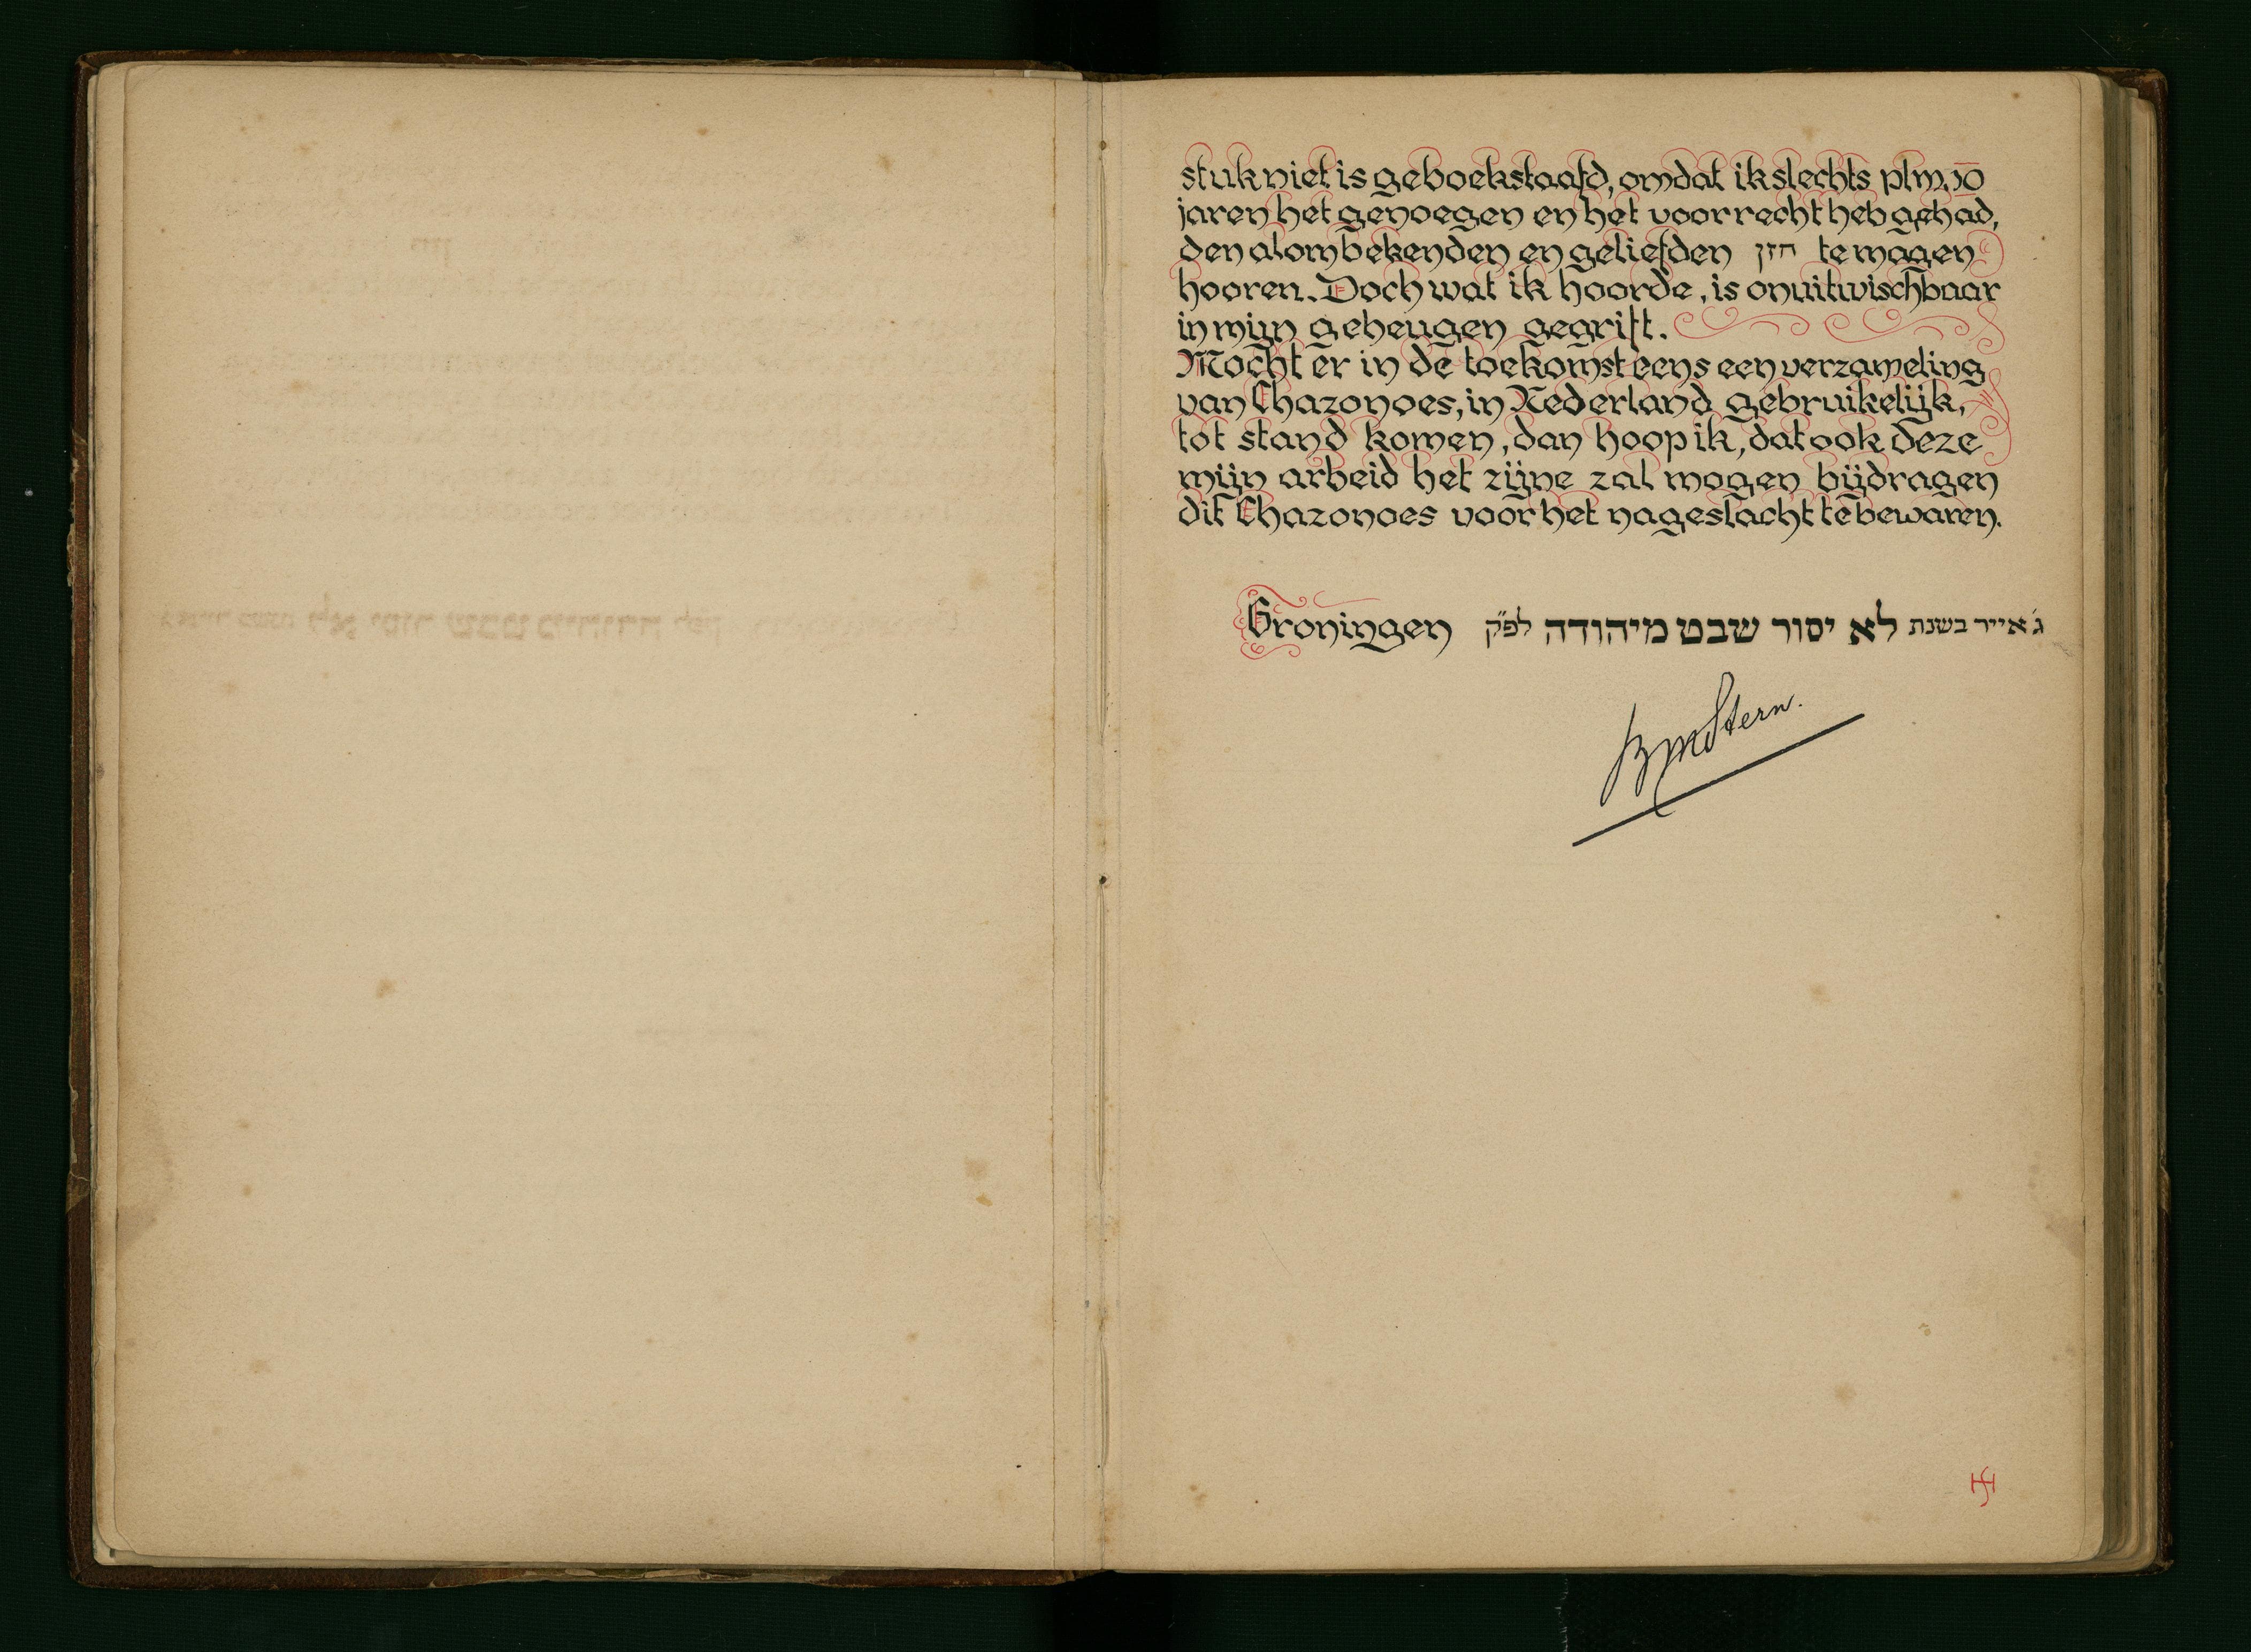 stuk niet is geboekstaafd, omdat ik slechts plm. 10
jaren het genoegen en het voorrecht heb gehad,
den alombekenden en geliefden חזן te mogen
hooren. Doch wat ik hoorde, is onuitwischbaar
in mijn geheugen gegrift.
Mocht er in de toekomst eens een verzameling
van Chazonoes, in Nederland gebruikelijk,
tot stand komen, dan hoop ik, dat ook deze
mijn arbeid het zijne zal mogen bijdragen
dit Chazonoes voor het nageslacht te bewaren.
Groningen ג׳ אייר בשנת לא יסור שבט מיהודה לפ״ק
Stern.